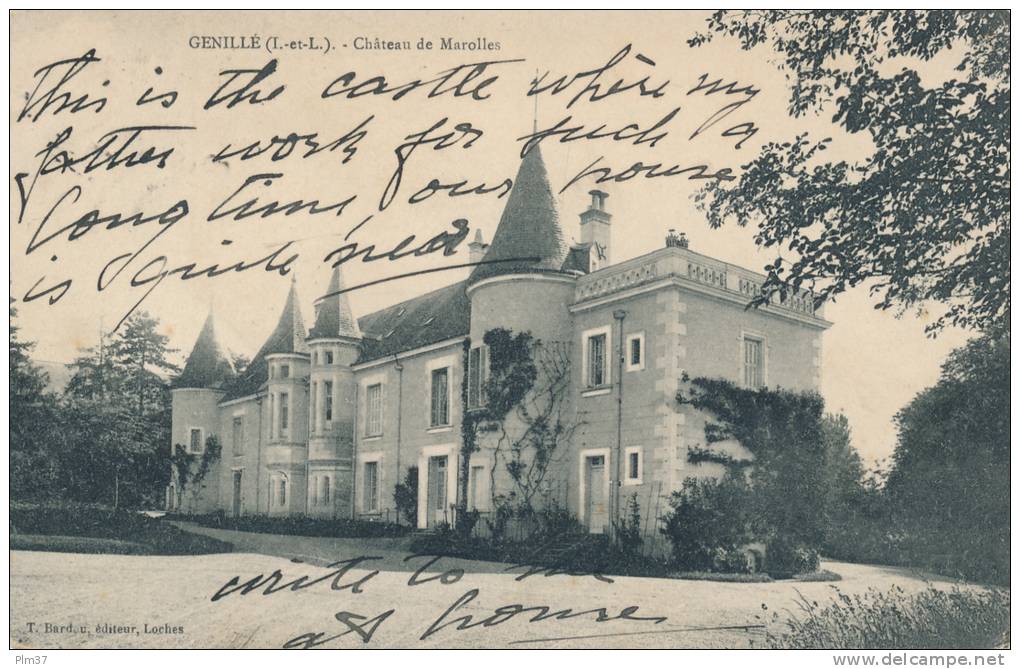 GENILLÉ (I.-et-L.). - Château de Marolles
This is the castle whère my
father work for such a
long time our house
is quite near
write to me
at home
T. Bardou, éditeur, Loches
Pim37
www.delcampe.net